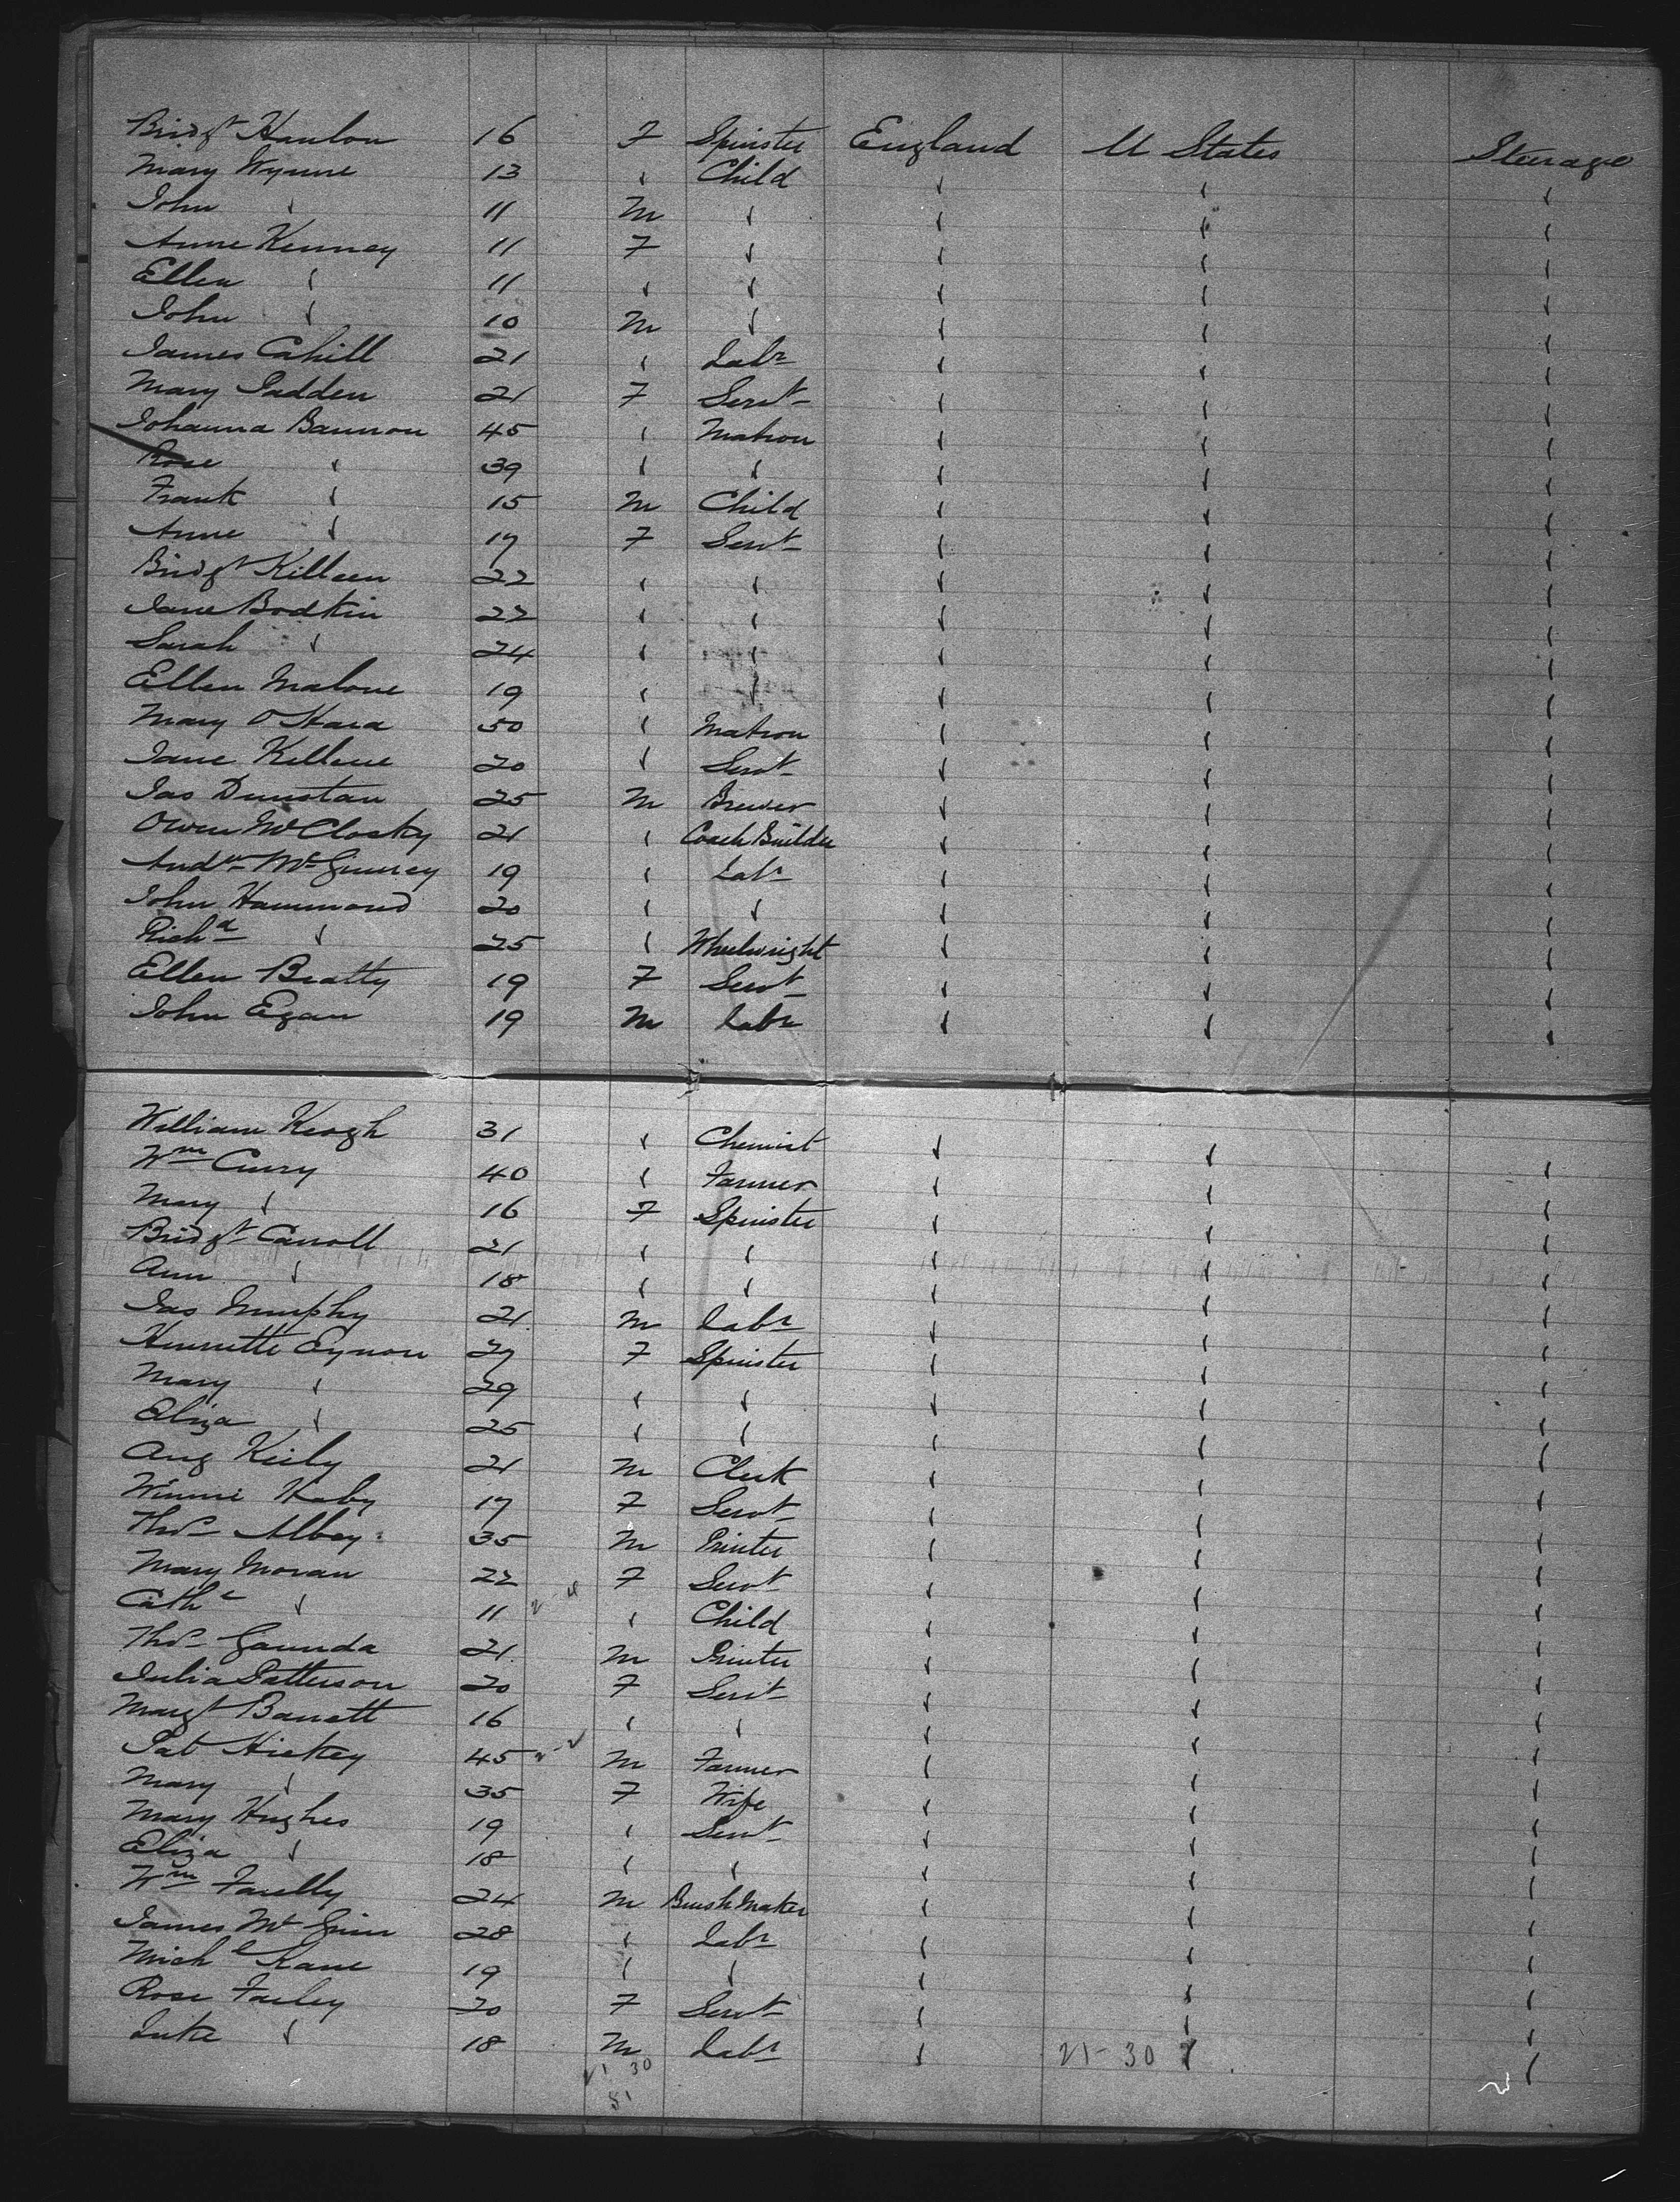 Bridgt Hanlon 16 F Spinster England U States Steerage
Mary Wynne 13 " Child " " "
John " 11 M " " " "
Anne Kenney 11 F " " " "
Ellen " 11 " " " " "
John " 10 M " " " "
James Cahill 21 " Labr " " "
Mary Padden 21 F Servt " " "
Johanna Bannon 45 " Matron " " "
Rose " 39 " " " " "
Frank " 15 M Child " " "
Anne " 17 F Servt " " "
Bridgt Killeen 22 " " " " "
Jane Bodkin 22 " " " " "
Sarah " 24 " " " " "
Ellen Malone 19 " " " " "
Mary O'Hara 50 " Matron " " "
Jane Killene 20 " Servt " " "
Jas Dunstan 25 M Brewer " " "
Owen McClosky 21 " Coach Builder " " "
Andw McGinney 19 " Labr " " "
John Hammond 20 " " " " "
Richd " 25 " Wheelwright " " "
Ellen Beatty 19 F Servt " " "
John Egan 19 M Labr " " "
William Keogh 31 " Chemist " " "
Wm Curry 40 " Farmer " " "
Mary " 16 F Spinster " " "
Bridgt Carroll 21 " " " " "
Ann " 18 " " " " "
Jas Murphy 21 M Labr " " "
Henrietta Eynon 27 F Spinster " " "
Mary " 29 " " " " "
Eliza " 25 " " " " "
Aug Keily 21 M Clerk " " "
Winnie 17 F Servt " " "
Thos Albey 35 M Printer " " "
Mary Moran 22 F Servt " " "
Cathe " 11 " Child " " "
Thos Gaunda 21 M Printer " " "
Julia Patterson 20 F Servt " " "
Margt Barrett 16 " " " " "
Pat Hickey 45 M Farmer " " "
Mary " 35 F Wife " " "
Mary Hughes 19 " Servt " " "
Eliza " 18 " " " " "
Wm Farelly 24 M Brush Maker " " "
James McGinn 28 " Labr " " "
Michl Kane 19 " " " " "
Rose Farley 20 F Servt " " "
Luke " 18 M Labr " " "
21 30 21-30
51